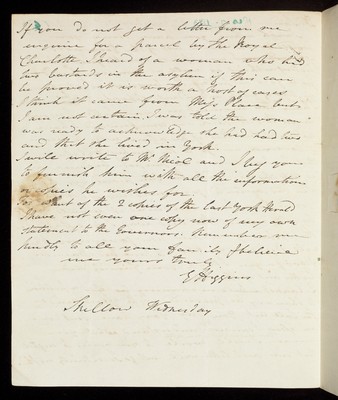 If you do not get a letter from me
enquire for a parcel by the Royal
Charlotte I heard of a woman who had
two bastards in the asylum if this can
be proved it is worth a host of cases
I think it came from Miss Place but
I am not certain. I was told the woman
was ready to acknowledge she had had two
and that she lived in York.
I will write to Mr Nicol and I beg you
to furnish him with all the information
or copies he wishes for
of the 2 copies of the last York Herald
I have not even one copy now of my own
statement to the Governors. Remember me
kindly to all your family & believe
me yours truly
G Higgins
Skellow Wednesday